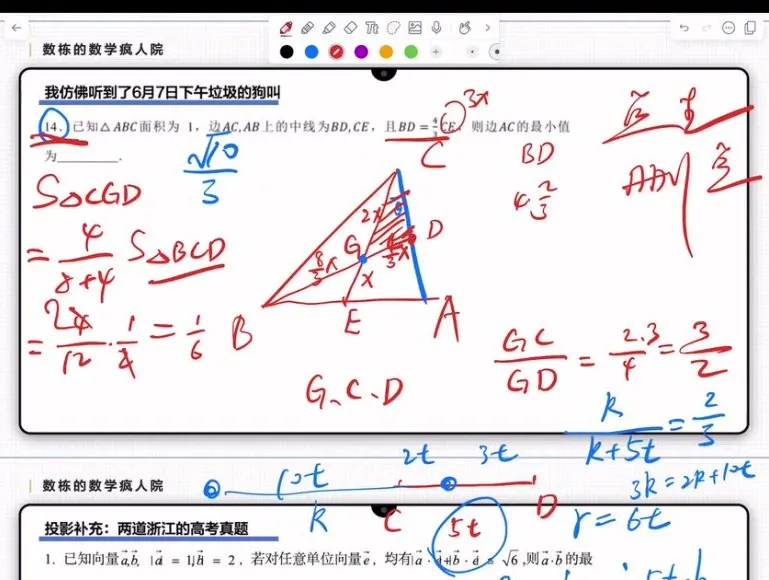 数栋的数学疯人院
我仿佛听到了6月7日下午垃圾的狗叫
14. 已知△ABC面积为 1，边AC,AB上的中线为BD,CE，且BD=4/3 CE，则边AC的最小值
为________.
√10/3
3x
C
BD
4·2/3
S△CGD
= 4/(8+4) S△BCD
= 24/12 · 1/4 = 1/6
2x
G
D
8/3x
4/3x
x
B
E
A
G、C、D
GC/GD = 2·3/4 = 3/2
k/(k+5t) = 2/3
3k=2k+10t
r=6t
2t
3t
10t
k
C
5t
D
数栋的数学疯人院
投影补充：两道浙江的高考真题
1. 已知向量a,b, |a| = 1,|b| = 2，若对任意单位向量e，均有|a·e|+|b·e| ≤ √6,则a·b的最